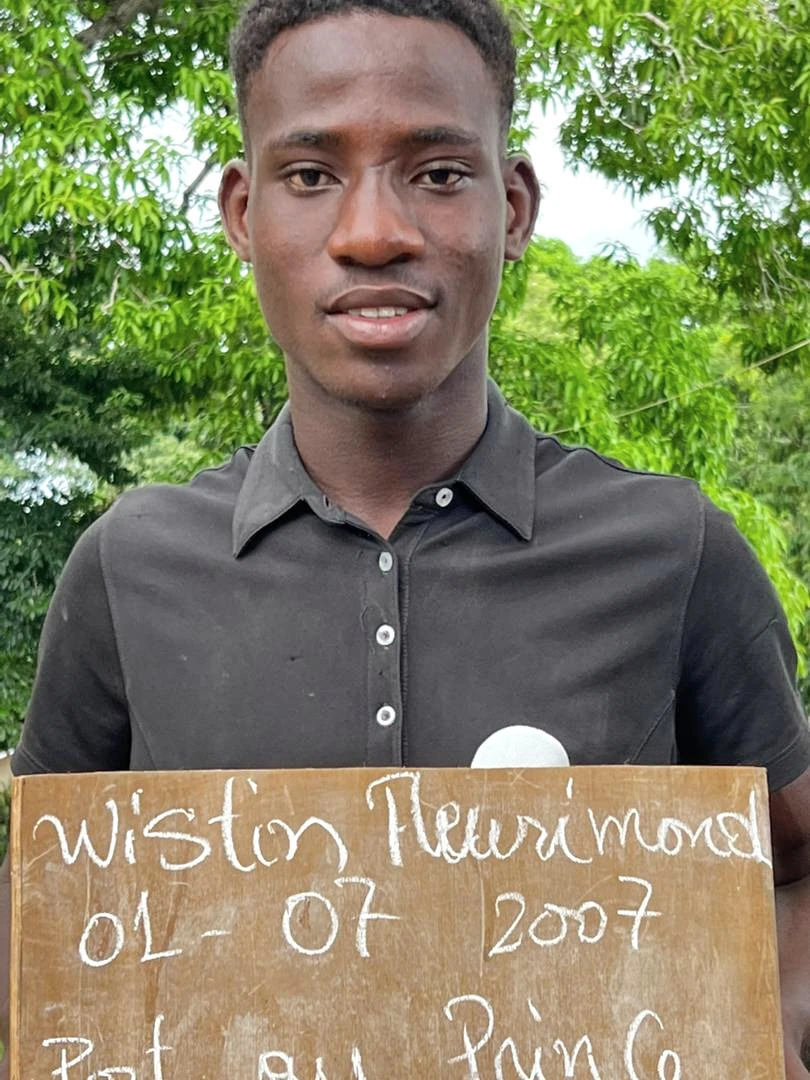 Wistin Fleurimond
01-07 2007
Port au Prince